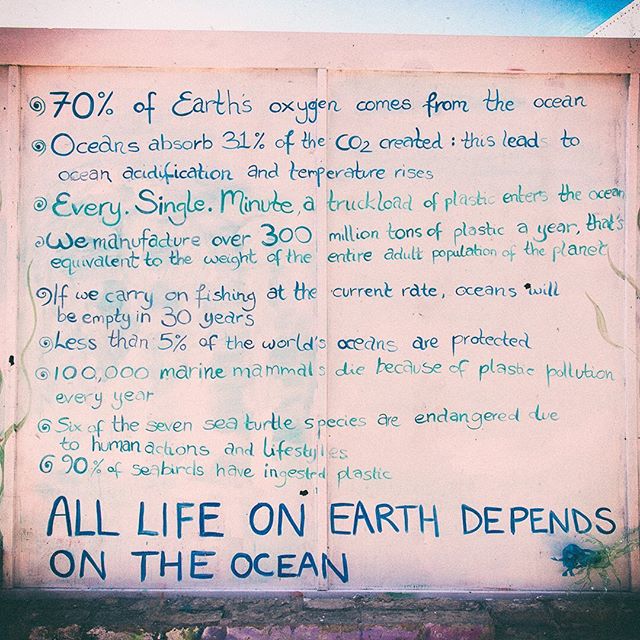 70% of Earth's oxygen comes from the ocean
Oceans absorb 31% of the CO2 created : this leads to
ocean acidification and temperature rises
Every. Single. Minute, a truckload of plastic enters the ocean
We manufacture over 300 million tons of plastic a year, that's
equivalent to the weight of the entire adult population of the planet
If we carry on fishing at the current rate, oceans will
be empty in 30 years
Less than 5% of the world's oceans are protected
100,000 marine mammals die because of plastic pollution
every year
Six of the seven sea turtle species are endangered due
to human actions and lifestyles
90% of seabirds have ingested plastic
ALL LIFE ON EARTH DEPENDS
ON THE OCEAN